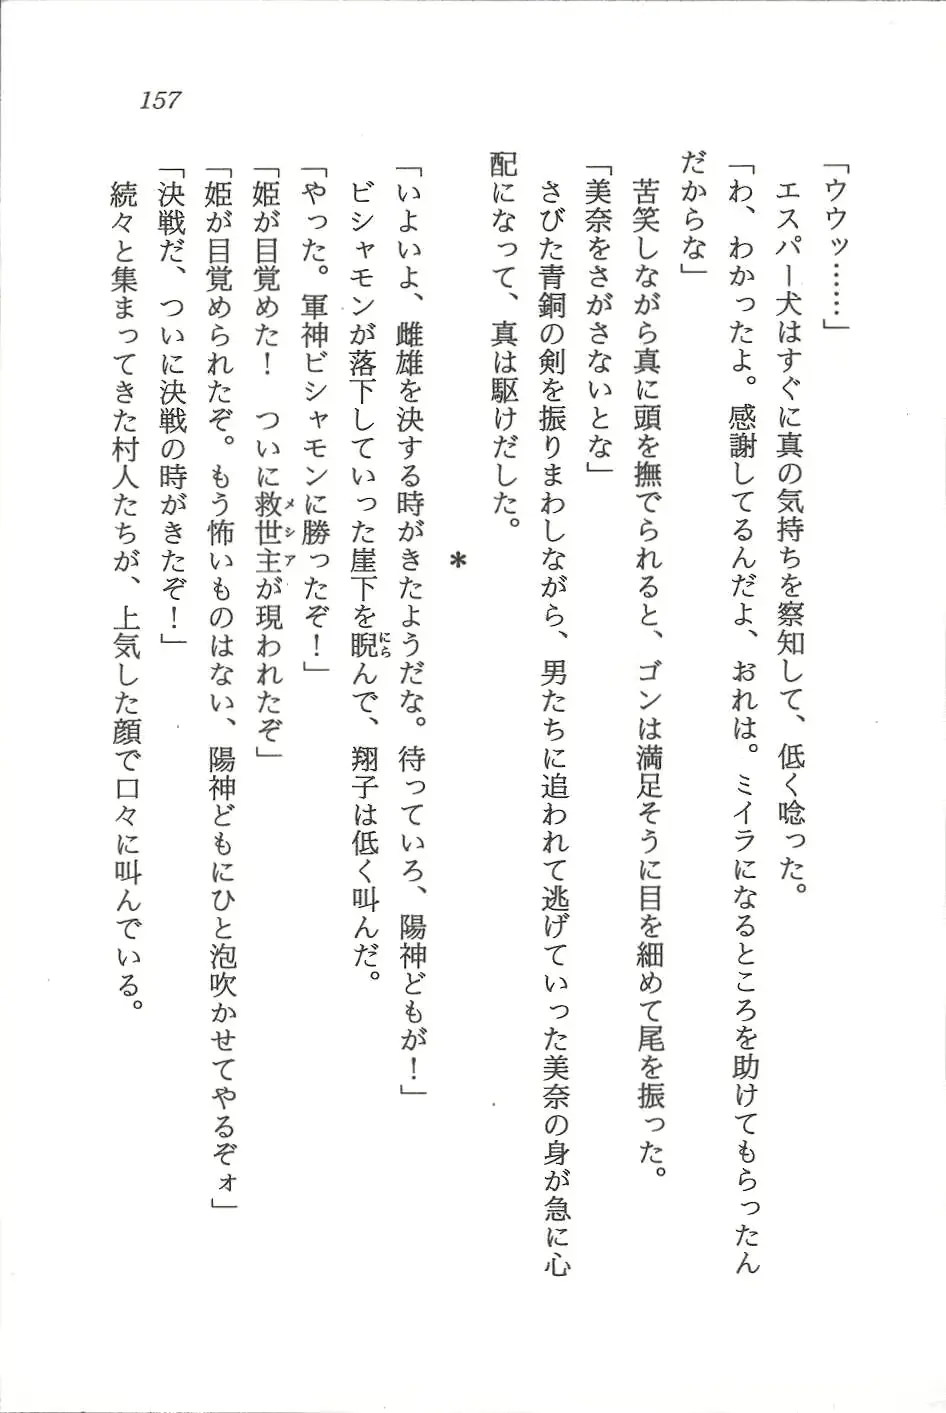 157
「ウウッ……」
　エスパー犬はすぐに真の気持ちを察知して、低く唸った。
「わ、わかったよ。感謝してるんだよ、おれは。ミイラになるところを助けてもらったん
だからな」
　苦笑しながら真に頭を撫でられると、ゴンは満足そうに目を細めて尾を振った。
「美奈をさがさないとな」
　さびた青銅の剣を振りまわしながら、男たちに追われて逃げていった美奈の身が急に心
配になって、真は駆けだした。
＊
「いよいよ、雌雄を決する時がきたようだな。待っていろ、陽神どもが！」
　ビシャモンが落下していった崖下を睨んで、翔子は低く叫んだ。
にら
「やった。軍神ビシャモンに勝ったぞ！」
「姫が目覚めた！　ついに救世主が現われたぞ」
メシア
「姫が目覚められたぞ。もう怖いものはない、陽神どもにひと泡吹かせてやるぞォ」
「決戦だ、ついに決戦の時がきたぞ！」
　続々と集まってきた村人たちが、上気した顔で口々に叫んでいる。